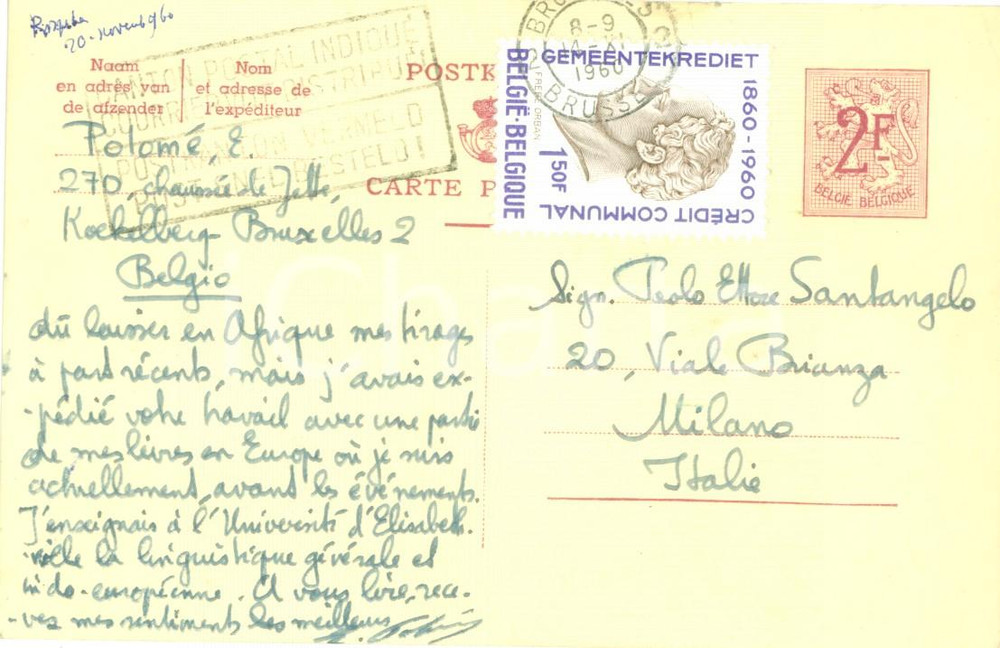 20-novemb 960
Naam
en adres van
de afzender
Nom
et adresse de
l'expéditeur
CANTON POSTAL INDIQUÉ
COURRIER DISTRIBUÉ
POSTKANTON VERMELD
BESTELD!
POSTK
CARTE P
BRUSSEL
8-9
14-XI
1960
GEMEENTEKREDIET
1860-1960
CRÉDIT COMMUNAL
BELGIË-BELGIQUE
FRÈRE ORBAN
1,50F
2F
BELGIË BELGIQUE
Polomé, E.
270, chaussée de Jette,
Koekelberg Bruxelles 2
Belgio
dû laisser en Afrique mes tirages
à part récents, mais j'avais ex-
-pédié votre travail avec une partie
de mes livres en Europe où je suis
actuellement, avant les événements.
J'enseignais à l'Université d'Elisabeth-
-ville la linguistique générale et
indo-européenne. A vous lire, rece-
-vez mes sentiments les meilleurs
Sign. Paolo Ettore Santangelo
20, Viale Brianza
Milano
Italie
iCharta